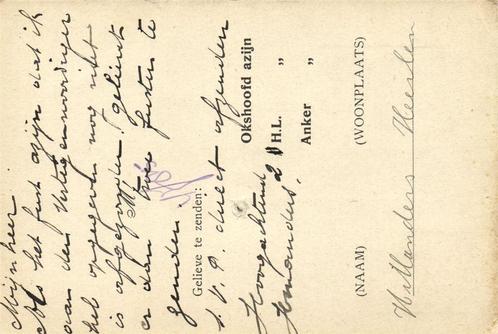 Mijnheer
Als het fust azijn dat ik
aan den Vertegenwoordiger
heb opgegeven nog niet
is afgezonden gelieve
er dan twee fusten te
zenden.
Gelieve te zenden:
s.v.p. direct afzenden
Okshoofd azijn
Hoogachtend
2 H.L. „ „
Anker „
(NAAM) (WOONPLAATS)
Witlanders Heerlen